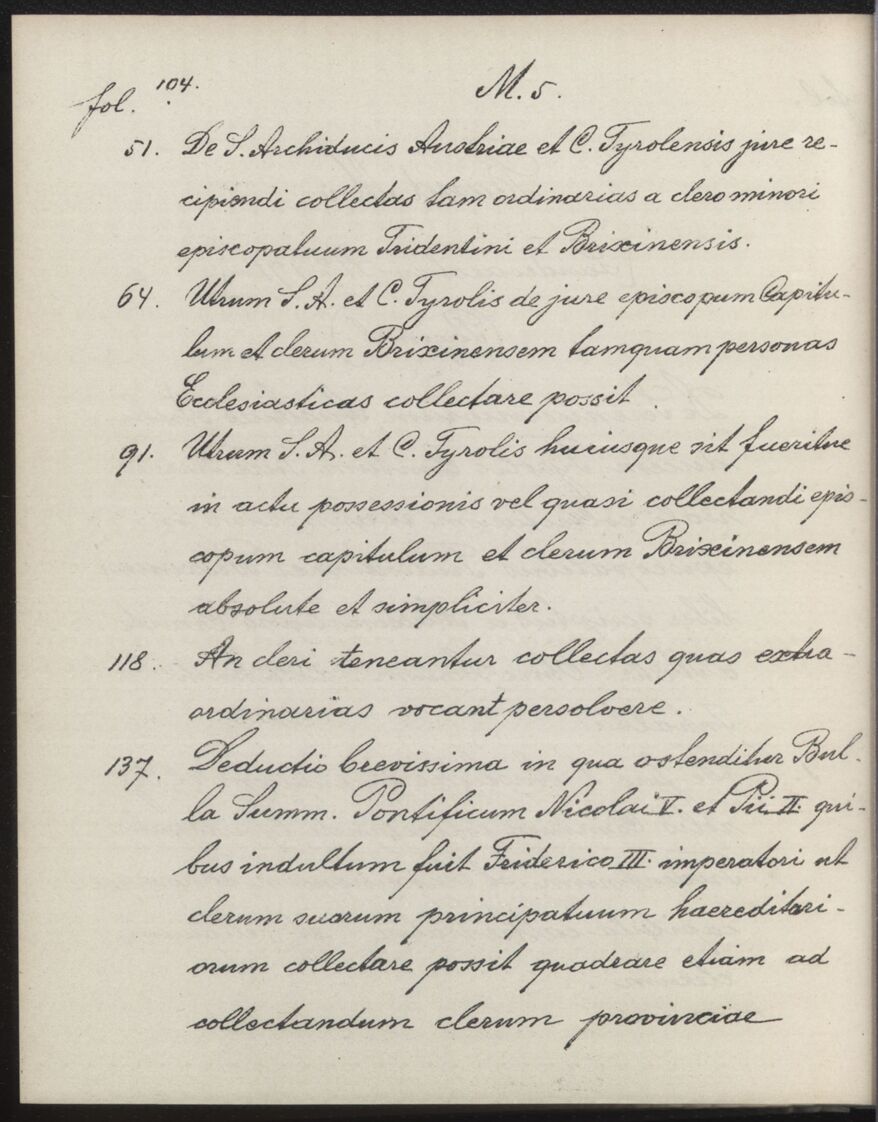 104. M. 5.
fol.
51. De S. Archiducis Austriae et C. Tyrolensis jure re-
cipiendi collectas tam ordinarias a clero minori
episcopatuum Tridentini et Brixinensis.
64. Utrum S. A. et C. Tyrolis de jure episcopum Capitu-
lum et clerum Brixinensem tamquam personas
Ecclesiasticas collectare possit.
91. Utrum S. A. et C. Tyrolis huiusque sit fueritve
in actu possessionis vel quasi collectandi epis-
copum capitulum et clerum Brixinensem
absolute et simpliciter.
118. An cleri teneantur collectas quas extra-
ordinarias vocant persolvere.
137. Deductio brevissima in qua ostenditur Bul-
la Summ. Pontificum Nicolai V. et Pii II. qui-
bus indultum fuit Friderico III. imperatori ut
clerum suorum principatuum haereditari-
orum collectare possit quadrare etiam ad
collectandum clerum provinciae